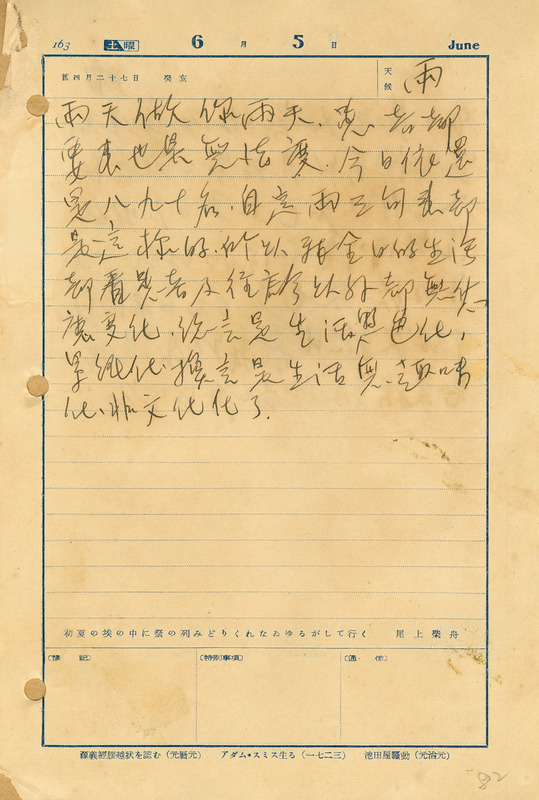 163 土曜 6月5日 June
舊四月二十七日 癸亥
天候 雨
雨天做你雨天、患者都
要來也是無法度、今日依還
是八九十名、自六兩三旬來都
是這樣的、所以我全日的生活
都看患者及往診以外都無什
麼變化、總言是生活單色化、
單純化、換言是生活無趣味
化、非文化化了、
初夏の埃の中に祭の列みどりくれたゐゆるがして行く 尾上柴舟
(登記) (特別事項) (通信)
源義經腰越狀を認む(元曆元) アダム・スミス生る(一七二三) 池田屋騷動(元治元)
82